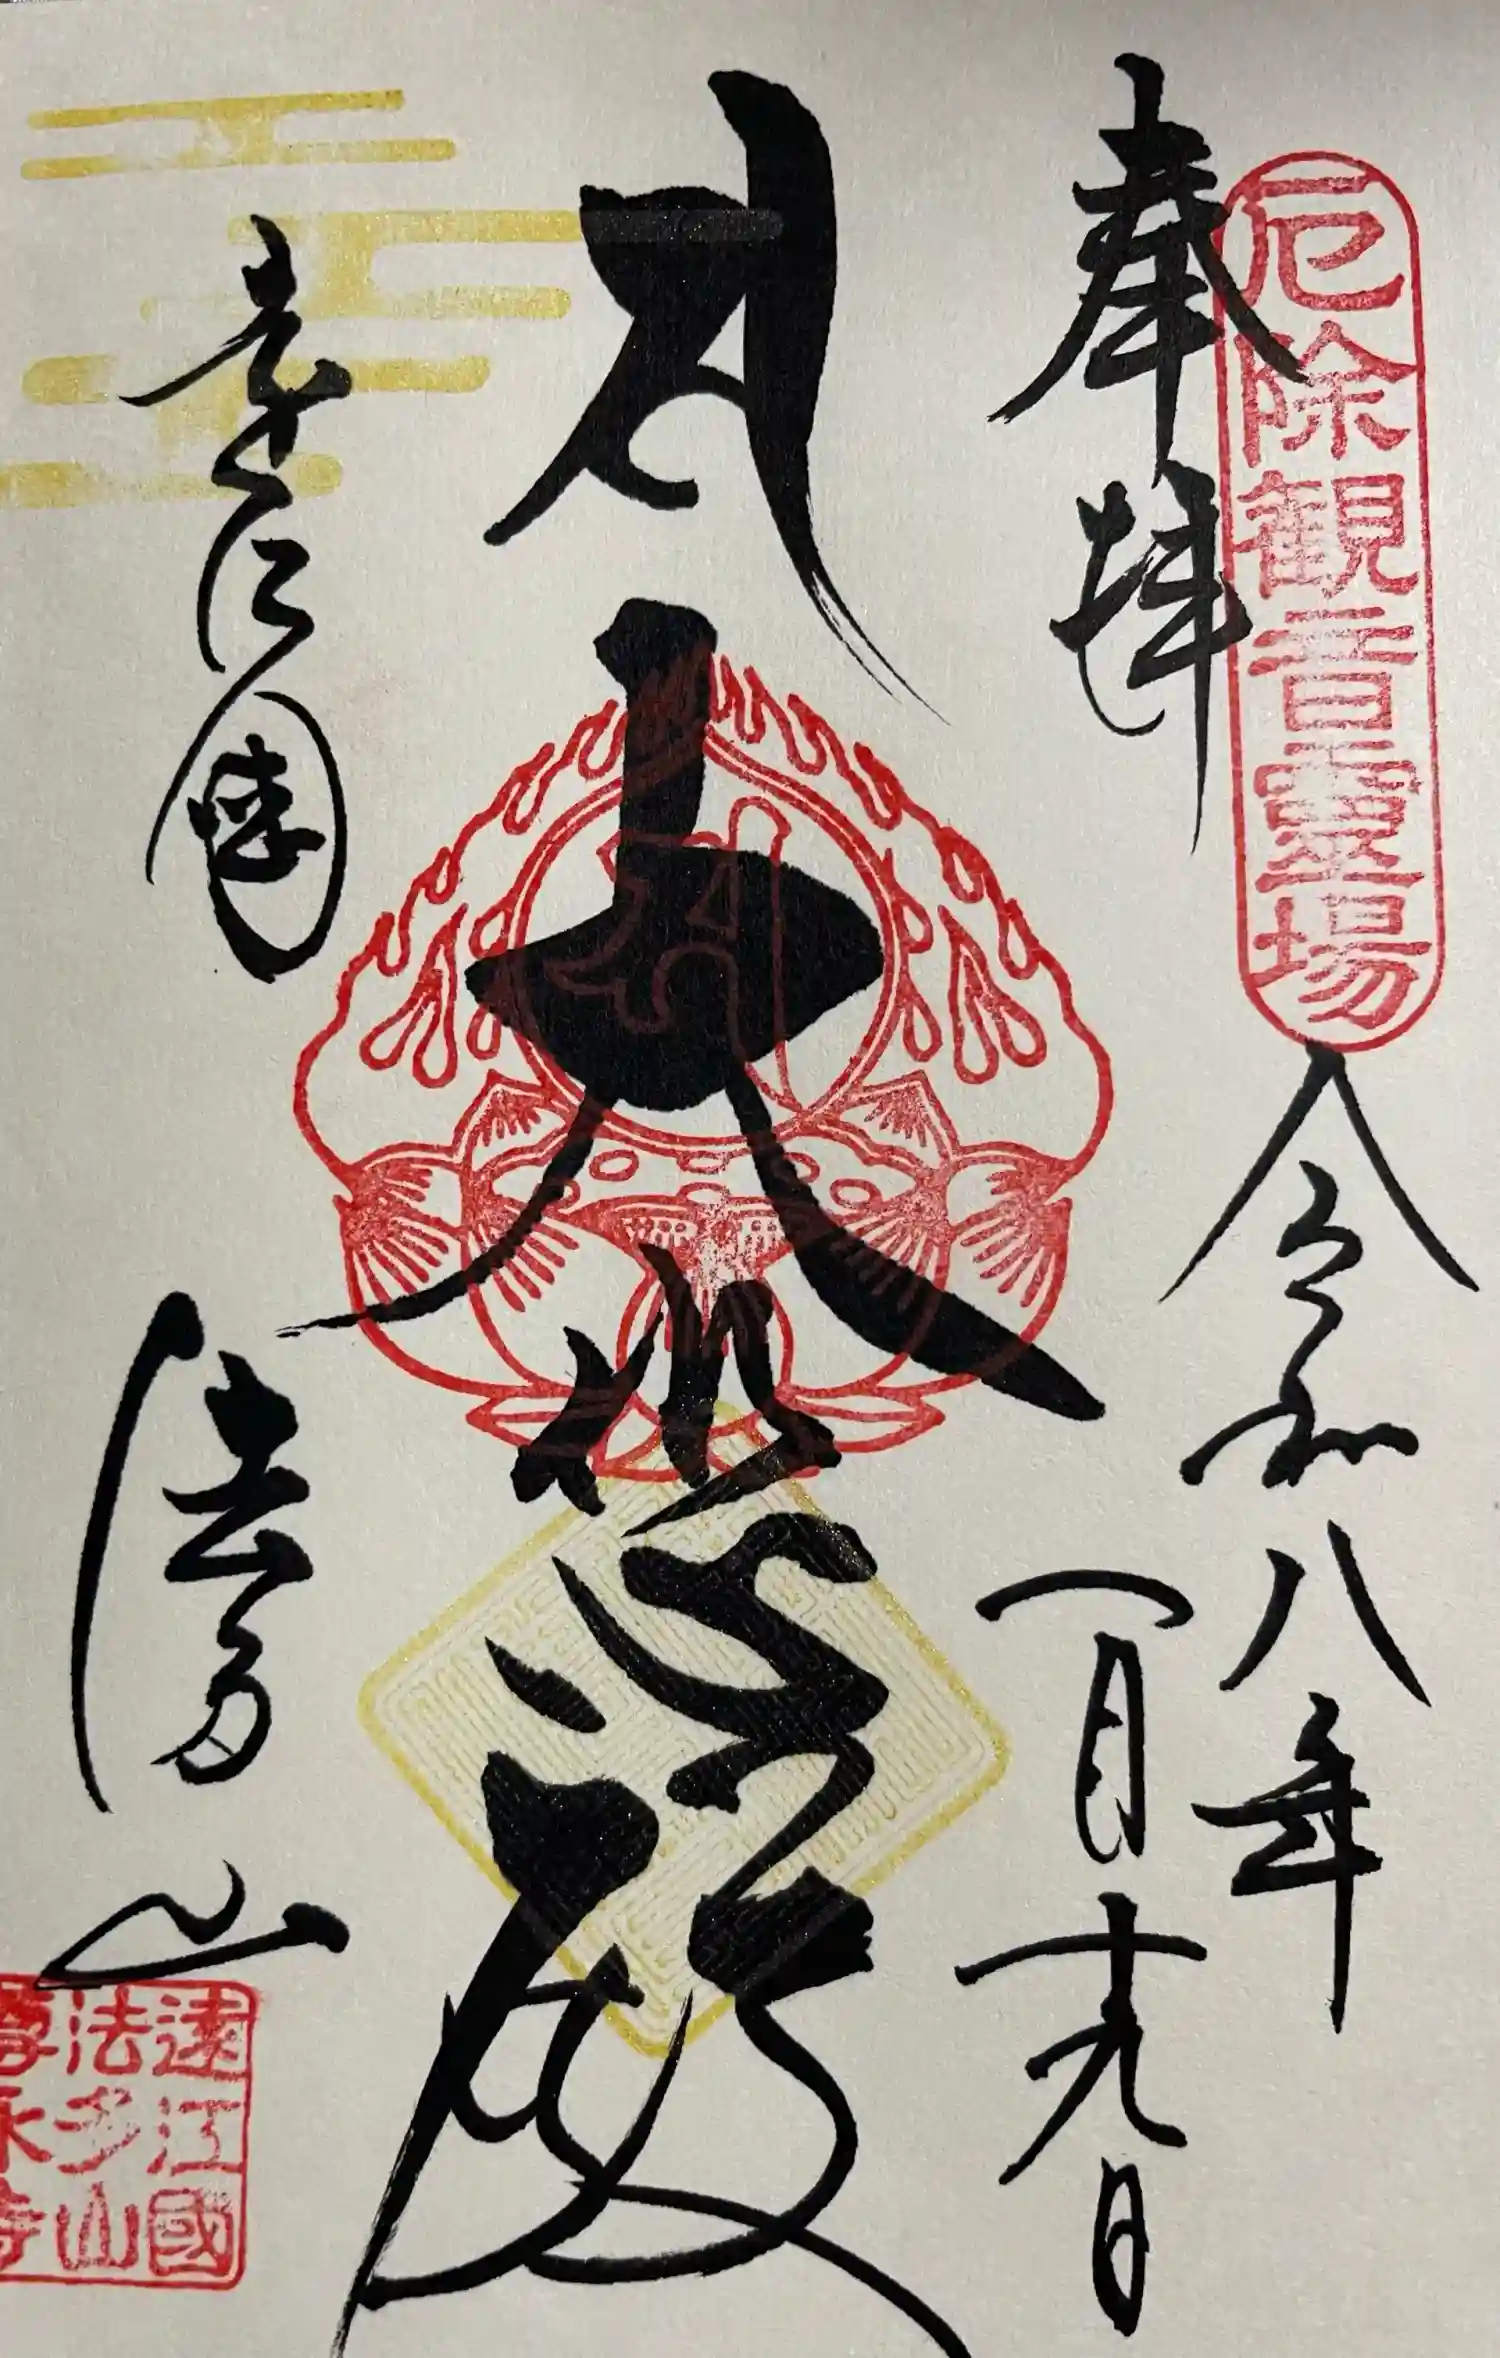 厄除観音霊場
奉拝
令和八年
一月十九日
大悲殿
遠江国
法多山
遠江國
法多山
尊永寺